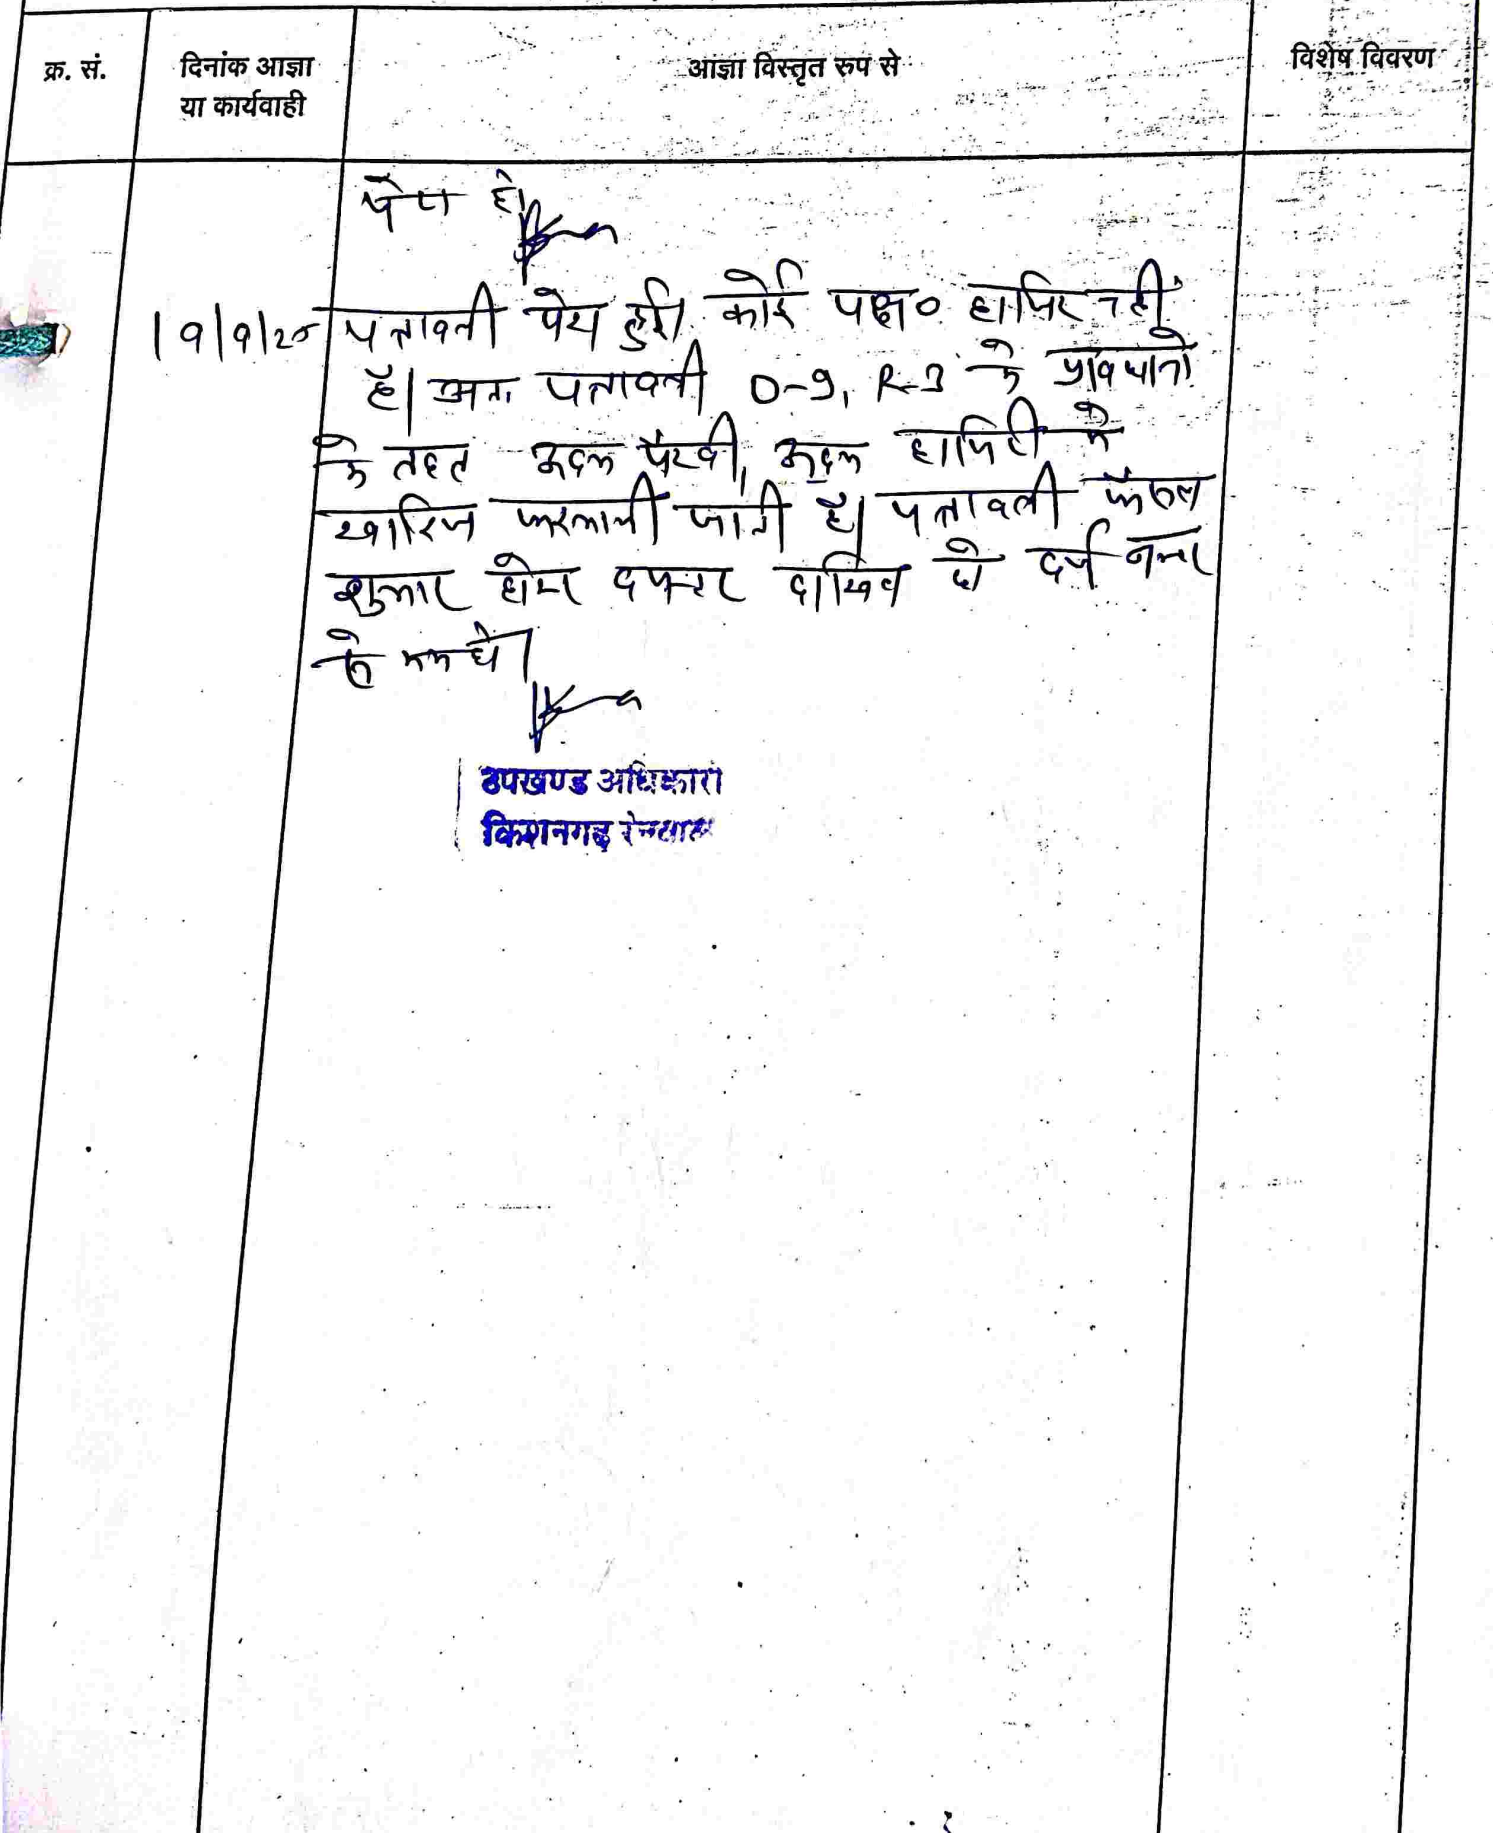 क्र. सं.
दिनांक आज्ञा
या कार्यवाही
आज्ञा विस्तृत रुप से
विशेष विवरण
पेश हो।
पत्रावली पेश हुई। कोई पक्ष० हाजिर नही
है। अतः पत्रावली O-9, R-3 के प्रावधानो
के तहत अदम पैरवी, अदम हाजिरी मे
खारिज फरमायी जाती है। पत्रावली फैसल
शुमार होकर दफ्तर दाखिल हो दर्ज नम्बर
से कम हो।
उपखण्ड अधिकारी
किशनगढ़ रेनवाल